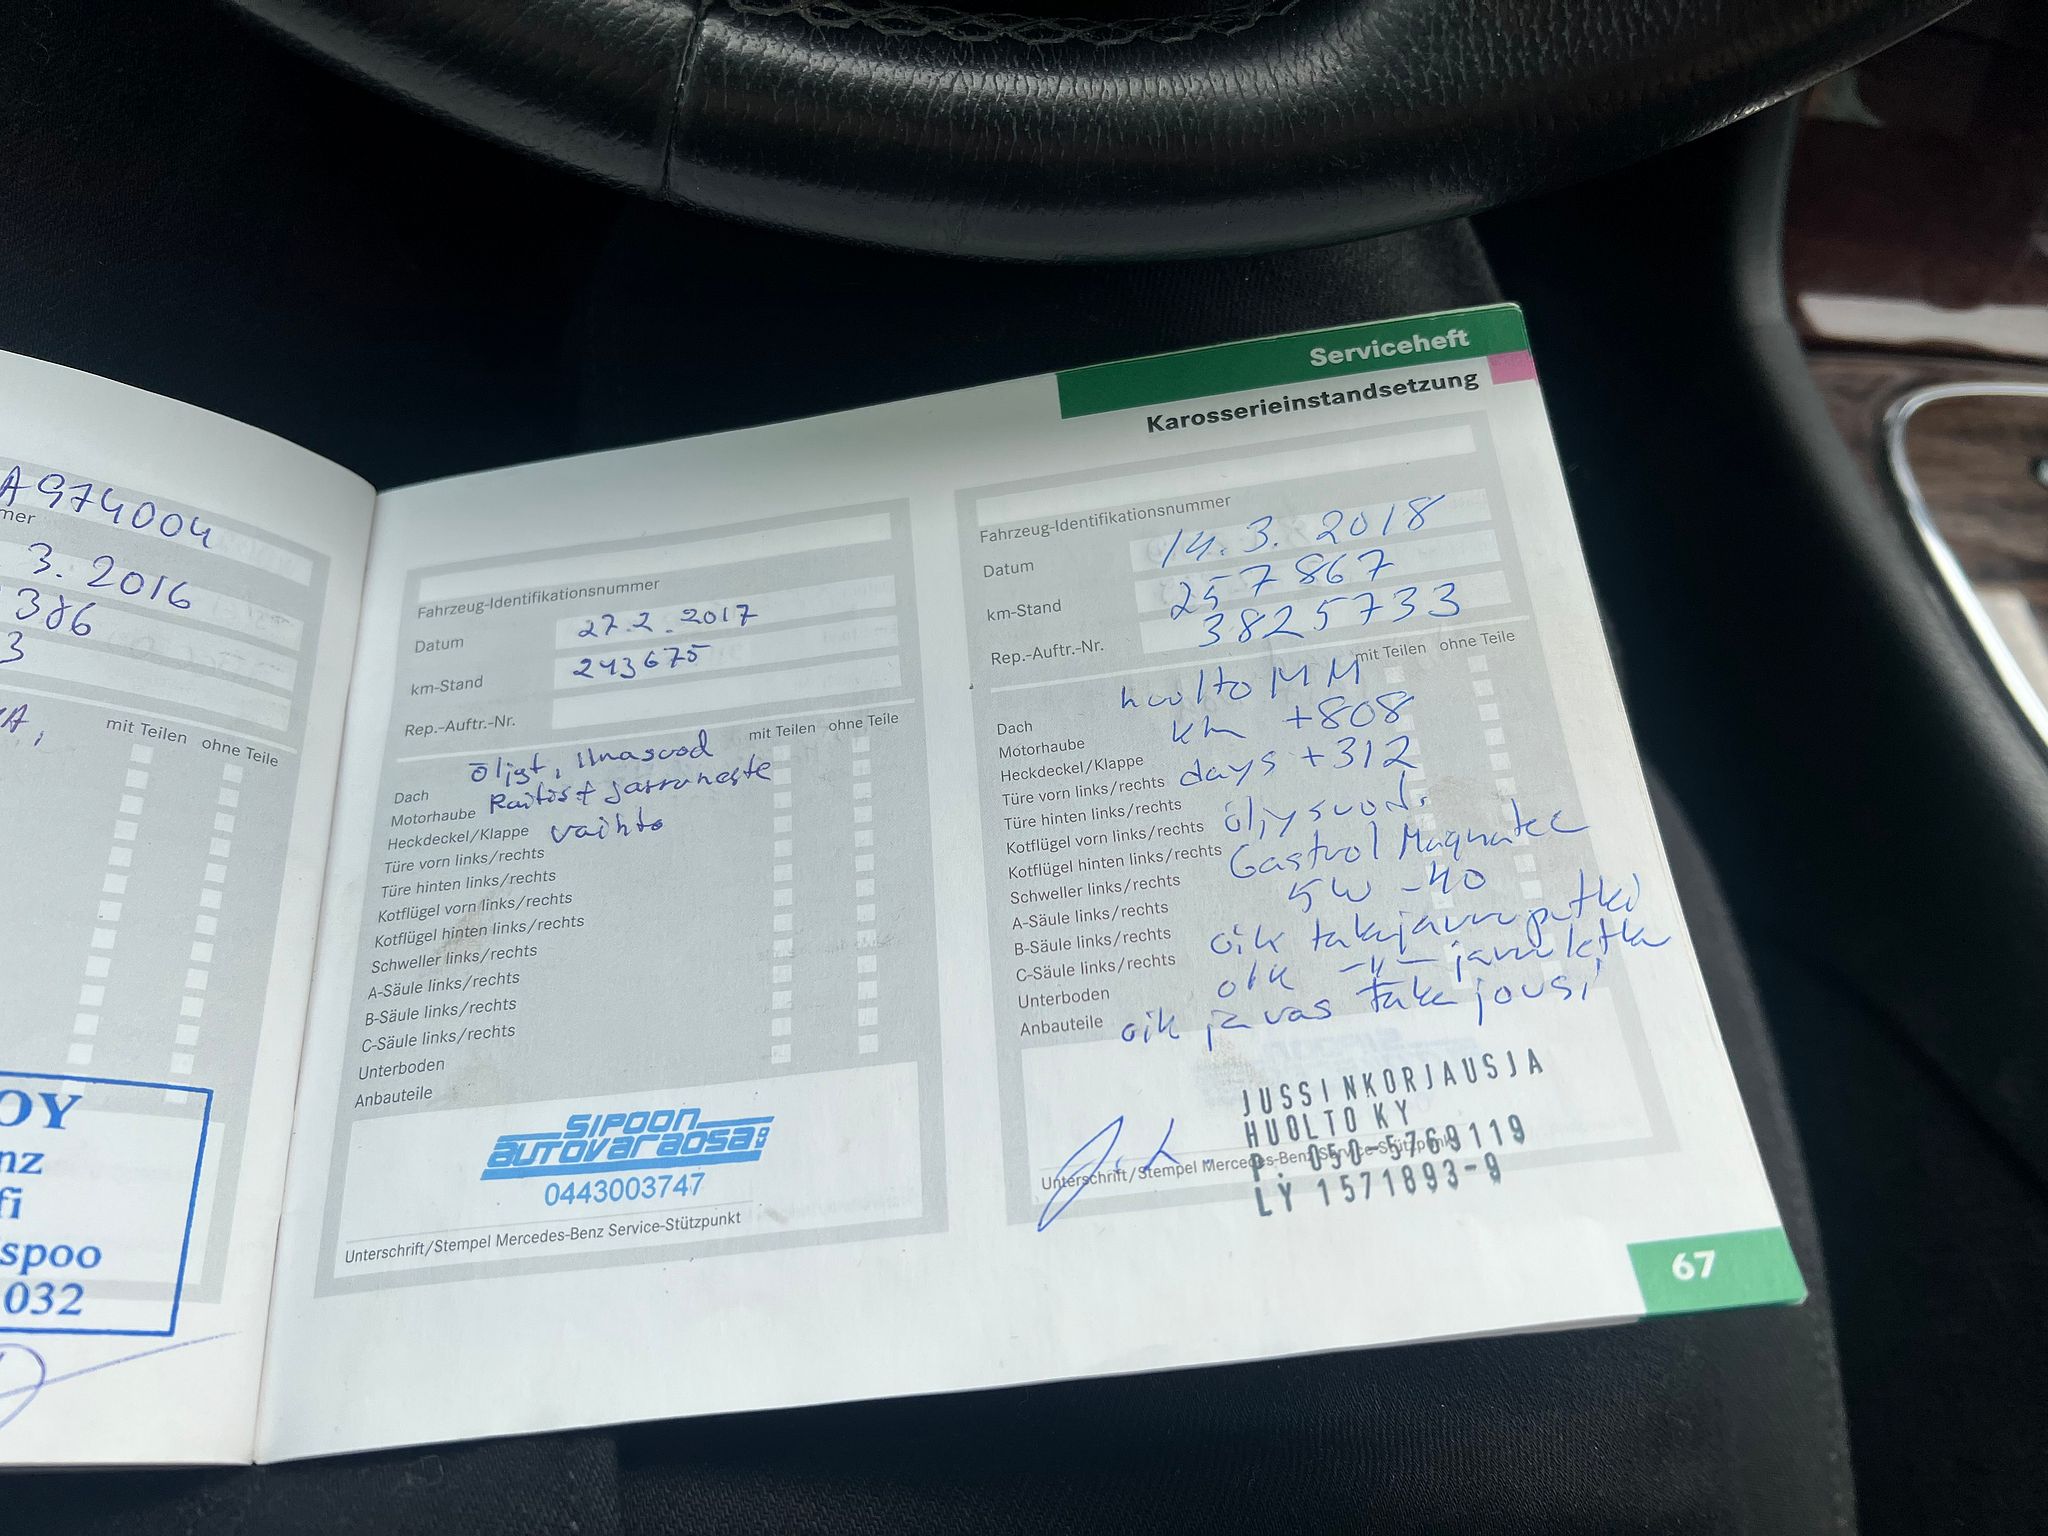 A974004
mer
3. 2016
386
3
KA,
mit Teilen ohne Teile
OY
nz
fi
spoo
032
Fahrzeug-Identifikationsnummer
Datum 27.2.2017
km-Stand 243675
Rep.-Auftr.-Nr.
mit Teilen ohne Teile
öljyt, ilmasuod
Dach
Raitist jarruneste
Motorhaube
vaihto
Heckdeckel/Klappe
Türe vorn links/rechts
Türe hinten links/rechts
Kotflügel vorn links/rechts
Kotflügel hinten links/rechts
Schweller links/rechts
A-Säule links/rechts
B-Säule links/rechts
C-Säule links/rechts
Unterboden
Anbauteile
SIPOON
AUTOVARAOSA
0443003747
Unterschrift/Stempel Mercedes-Benz Service-Stützpunkt
Serviceheft
Karosserieinstandsetzung
Fahrzeug-Identifikationsnummer
Datum 14.3.2018
km-Stand 257867
Rep.-Auftr.-Nr. 3825733
mit Teilen ohne Teile
huolto MM
Dach
km +808
Motorhaube
Heckdeckel/Klappe
days +312
Türe vorn links/rechts
Türe hinten links/rechts
öljysuod.
Kotflügel vorn links/rechts
Castrol Magnatec
Kotflügel hinten links/rechts
5W-40
Schweller links/rechts
A-Säule links/rechts
oik takajarruputki
B-Säule links/rechts
oik -"- jarruletku
C-Säule links/rechts
Unterboden
oik ja vas takajousi
Anbauteile
JUSSINKORJAUSJA
HUOLTO KY
P. 050-5769119
LY 1571893-9
Unterschrift/Stempel Mercedes-Benz Service-Stützpunkt
67